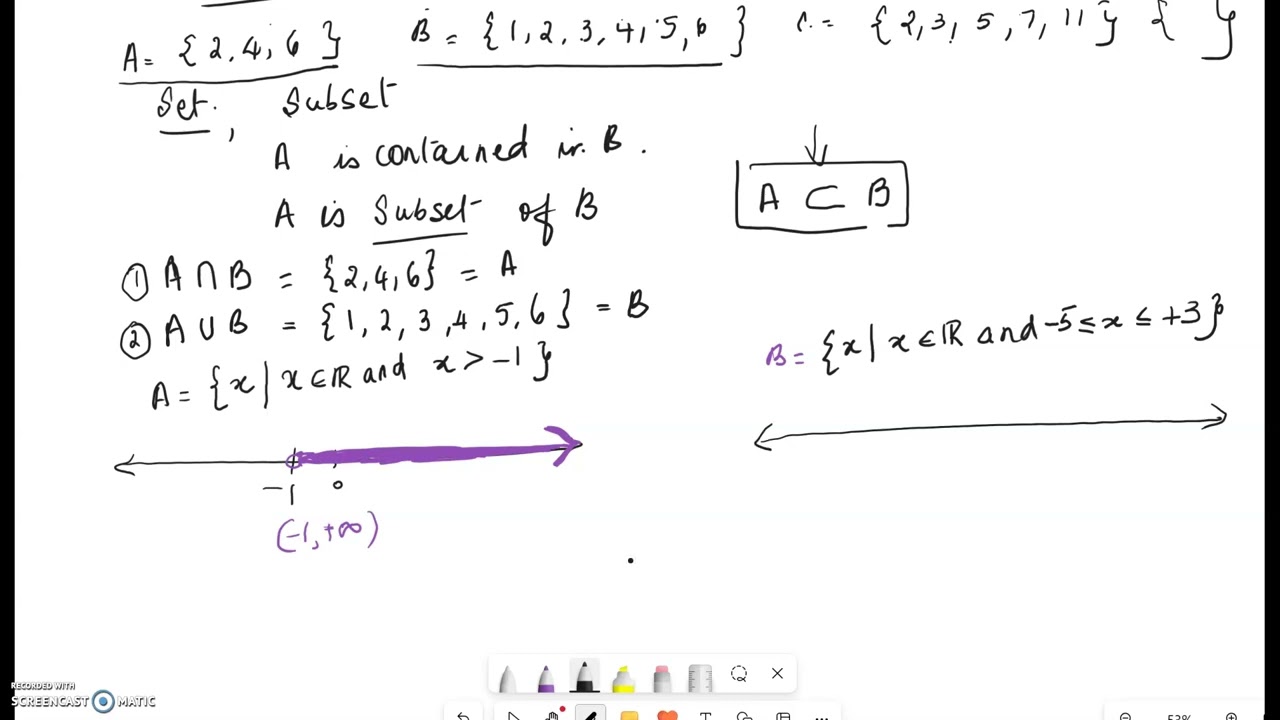 A = {2, 4, 6} B = {1, 2, 3, 4, 5, 6} C = {2, 3, 5, 7, 11} { }
Set, Subset
A is contained in B.
A is Subset of B
A ⊂ B
① A ∩ B = {2, 4, 6} = A
② A ∪ B = {1, 2, 3, 4, 5, 6} = B
A = {x | x ∈ ℝ and x > -1}
B = {x | x ∈ ℝ and -5 ≤ x ≤ +3}
-1 0
(-1, +∞)
RECORDED WITH
SCREENCAST MATIC
T
53%